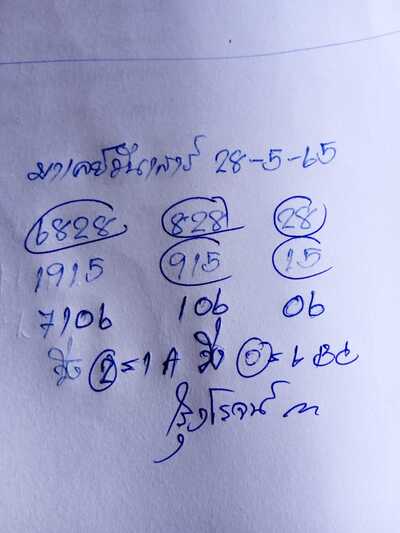 มาเลย์วันเสาร์ 28-5-65
6828 828 28
1915 915 15
7106 106 06
วิ่ง 2=1A วิ่ง 0=6BC
รุ่งโรจน์